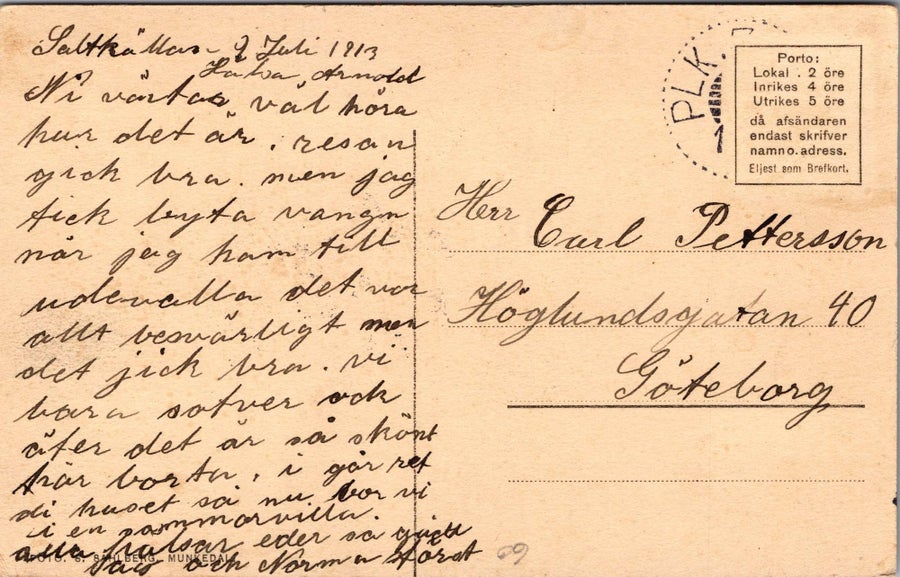 Saltkällan 9 Juli 1913
Hälsa Arnold
Ni väntar väl höra
hur det är. resan
gick bra. men jag
fick byta vangn
når jag kam till
udevalla det var
allt besvärligt men
det jick bra. vi
bara sover ock
äter det är så skönt
här borta. i går ret
di huset så nu bor vi
i en sommarvilla.
alla hälsar eder så gått
och Norma
FOTO. S. SAHLBERG, MUNKEDAL
PLK.
Porto:
Lokal . 2 öre
Inrikes 4 öre
Utrikes 5 öre
då afsändaren
endast skrifver
namn o. adress.
Eljest som Brefkort.
Herr Carl Pettersson
Höglundsgatan 40
Göteborg